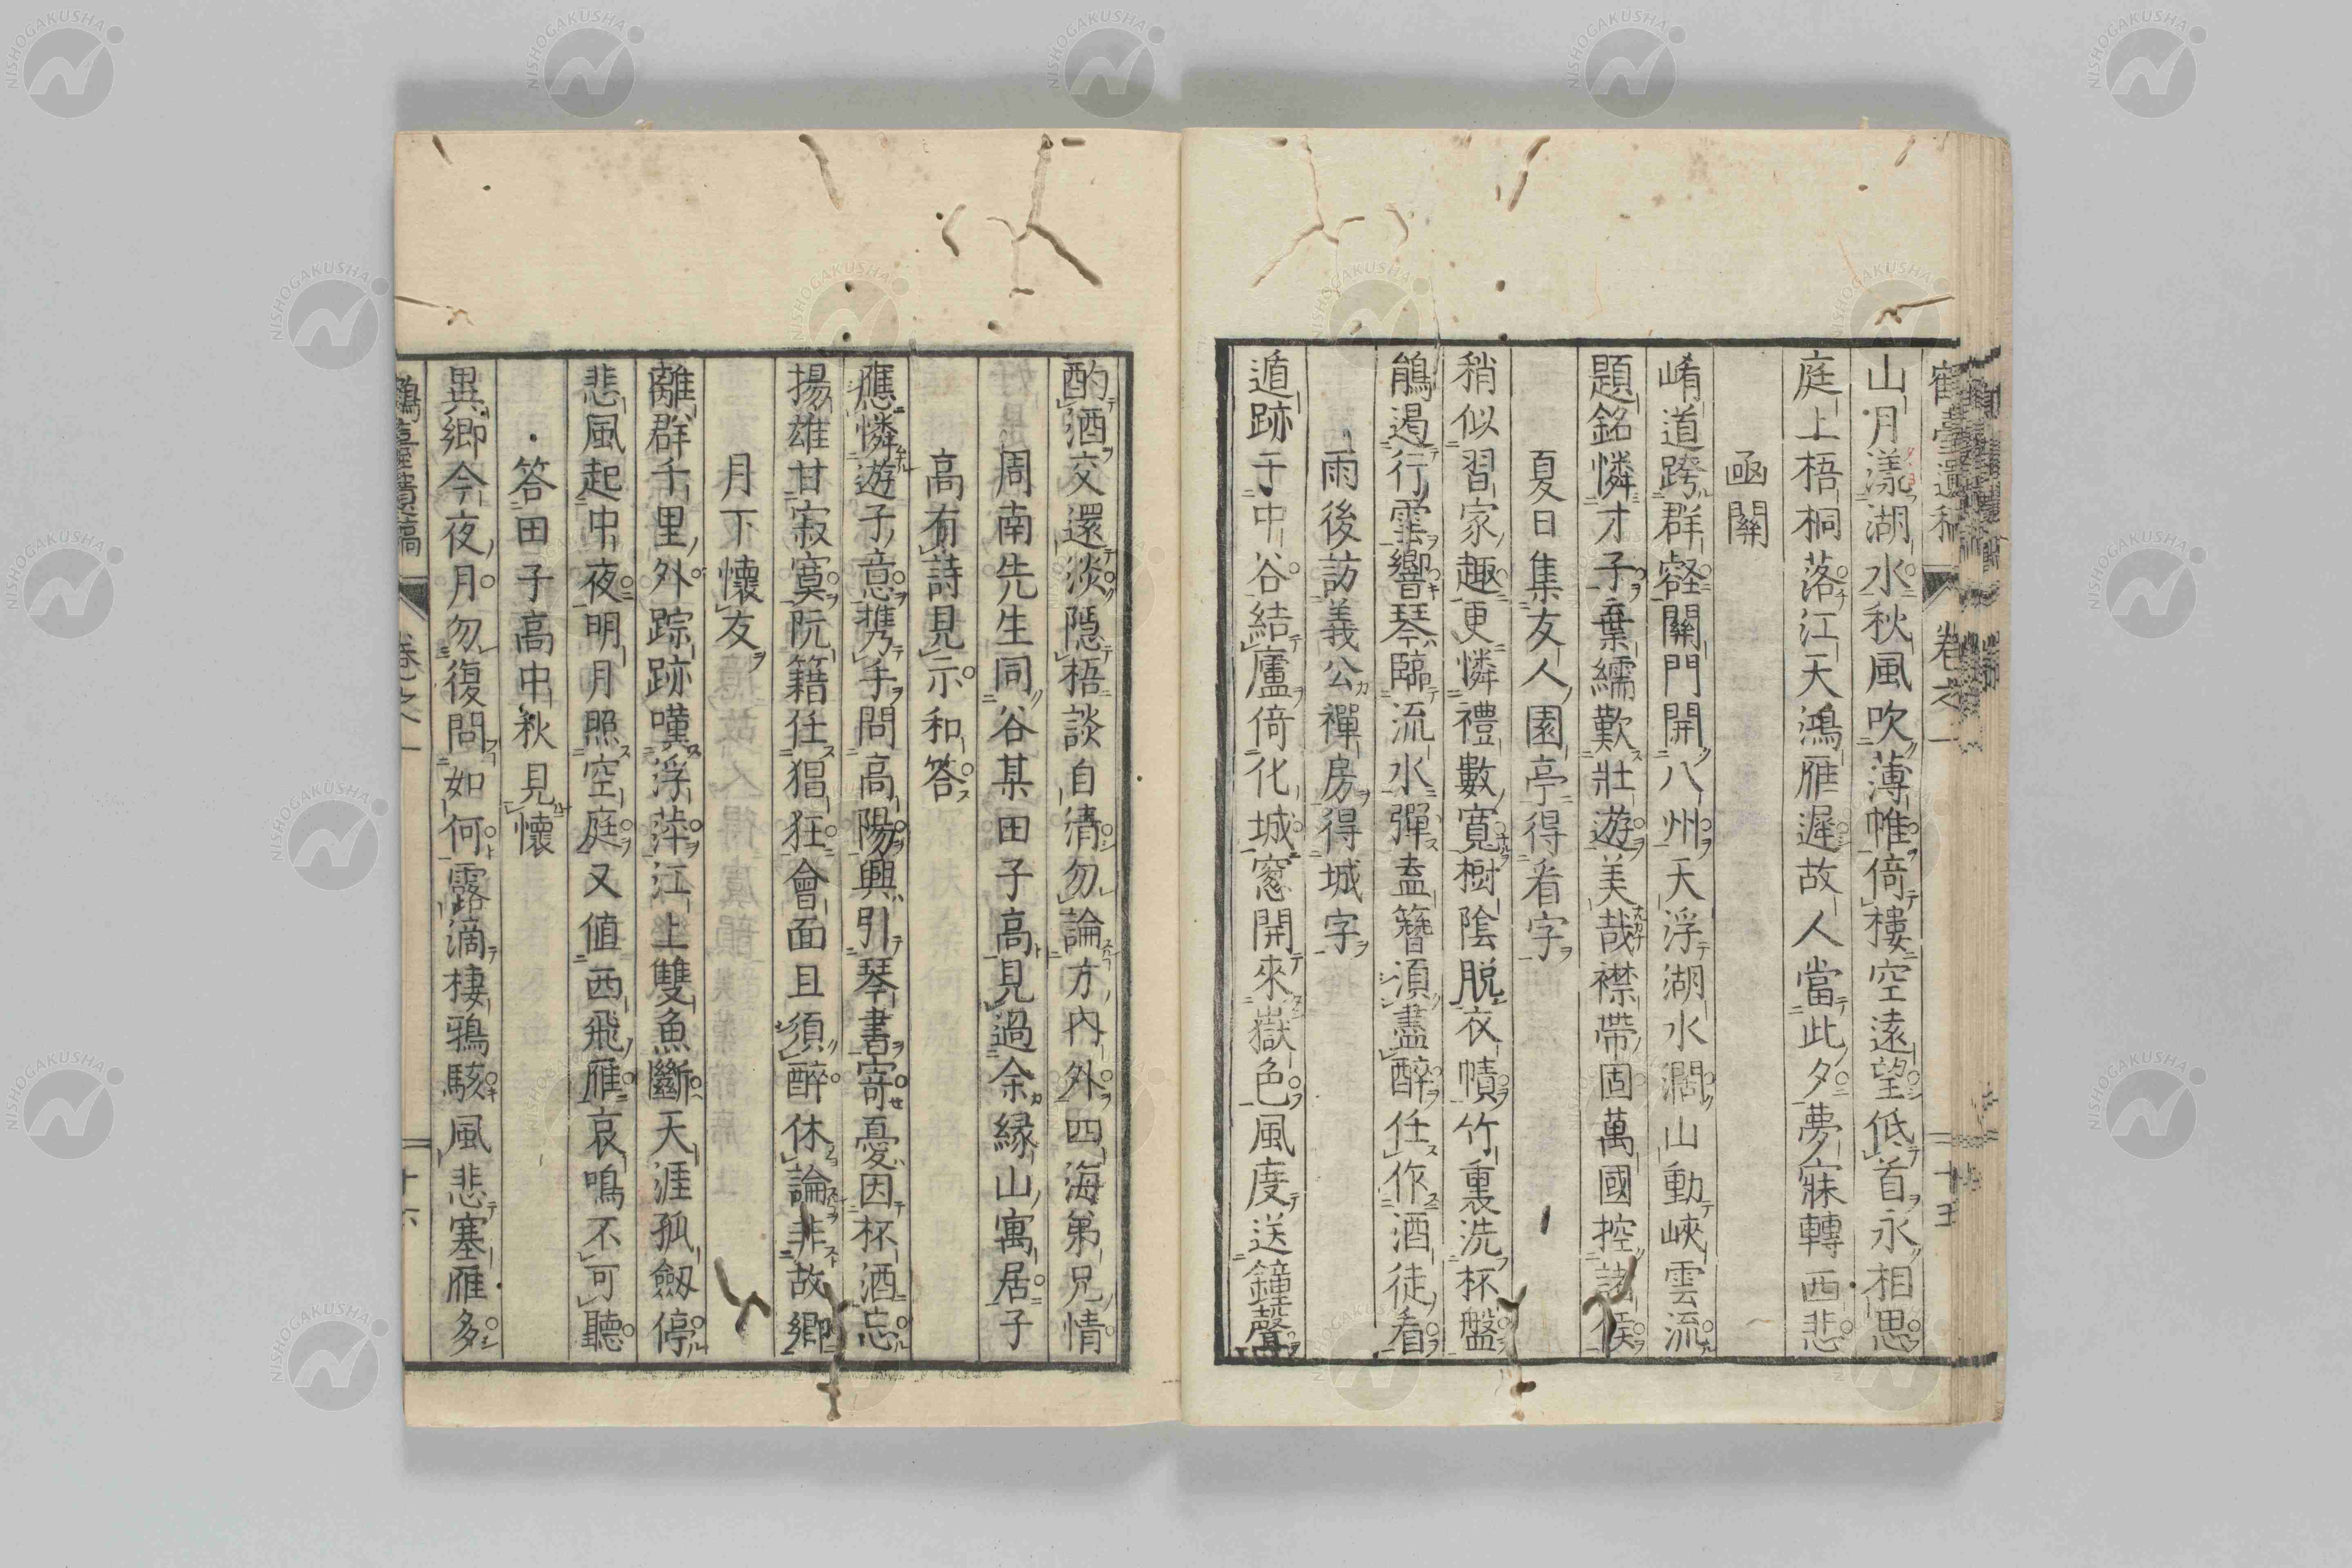 山月漾湖水秋風吹薄帷倚樓空遠望低首永相思
庭上梧桐落江天鴻雁遲故人當此夕夢寐轉西悲
凾關
崤道跨群壑關門開八州天浮湖水濶山動峽雲流
題銘憐才子棄繻歎壯遊美哉襟帶固萬國控諸侯
夏日集友人園亭得看字
稍似習家趣更憐禮數寬樹陰脱衣幘竹裏洗杯盤
鵑遏行雲響琴臨流水彈盍簪須盡醉任作酒徒看
雨後訪義公禪房得城字
遁跡于中谷結廬倚化城窓開來嶽色風度送鐘聲
酌酒交還淡隱梧談自清勿論方内外四海弟兄情
周南先生同谷某田子高見過余縁山寓居子
高有詩見示和答
應憐遊子意携手問高陽興引琴書寄憂因杯酒忘
揚雄甘寂寞阮籍任猖狂會面且須醉休論非故郷
月下懷友
離群千里外踪跡嘆浮萍江上雙魚斷天涯孤劔停
悲風起中夜明月照空庭又値西飛雁哀鳴不可聽
答田子高中秋見懷
異郷今夜月勿復問如何露滴棲鴉駭風悲塞雁多
鶴臺遺稿 卷之一 十六
NISHOGAKUSHA